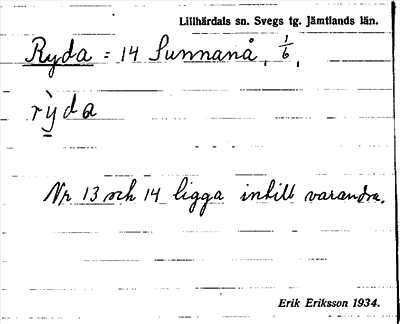 Lillhärdals sn. Svegs tg. Jämtlands län.
Ryda = 14 Sunnanå, 1/6,
rỳda
Nr 13 och 14 ligga intill varandra.
Erik Eriksson 1934.